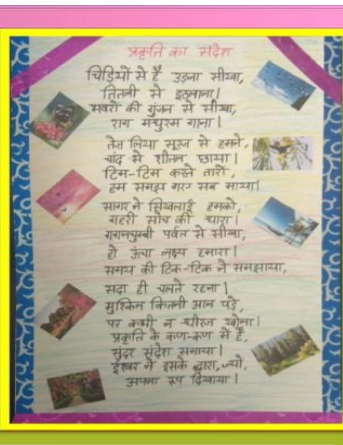 प्रकृति का संदेश
चिड़ियों से है उड़ना सीखा,
तितली से इठलाना।
भवरों की गुंजन से सीखा,
राग मधुरम गाना।
तेज लिया सूरज से हमने,
चांद से शीतल छाया।
टिम-टिम करते तारों,
हम समझ गए सब माया।
सागर ने सिखलाई हमको,
गहरी सोच की धारा।
गगनचुम्बी पर्वत से सीखा,
हो ऊंचा लक्ष्य हमारा।
समय की टिक-टिक ने समझाया,
सदा ही चलते रहना।
मुश्किल कितनी आन पड़े,
पर कभी न धीरज खोना।
प्रकृति के कण-कण में है,
सुन्दर संदेश समाया।
ईश्वर ने इसके द्वारा, ज्यों,
अपना रूप दिखाया।